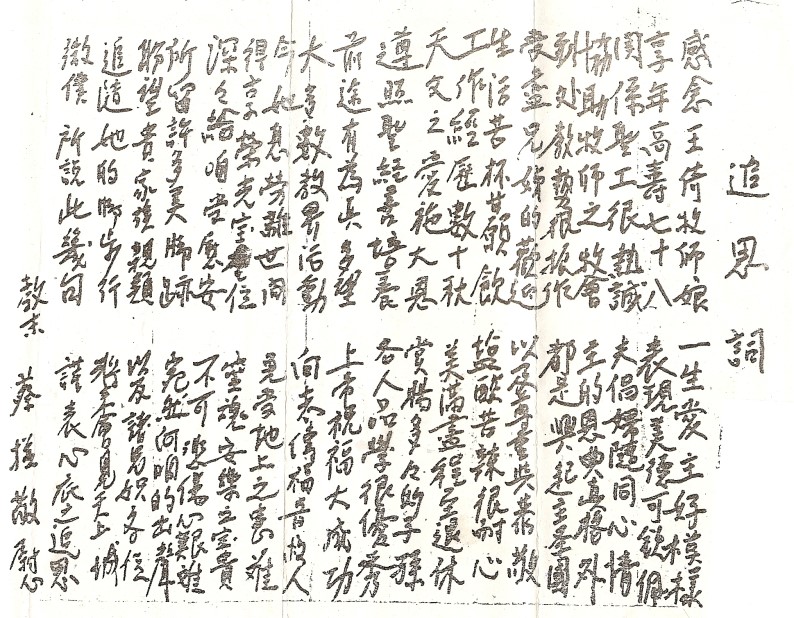 追思詞
感念王倚牧師娘 一生愛主好模樣
享年高壽七十八 表現美德可欽佩
関係聖工很熱誠 夫倡婦隨同心情
協助牧師之牧會 主的恩典真格外
到処教勢很振作 都是興起主圣國
受盡兄姉的歡迎 以及尊重與恭敬
生活苦杯甘願飲 塩酸苦辣很耐心
工作經歷數十秋 美滿盡程至退休
天父之愛施大恩 賞賜多々的子孫
遵照聖經善培養 各人品學很優秀
前途有為具多望 上帝祝福大成功
大多數教界活動 向來傳福音救人
今她息勞離世間 免受地上之苦難
得著榮光寶座位 靈魂安樂至寶貴
深々給咱安 不可悲傷心艱難
所留許多美脚跡 宛然向咱的出聲
盼望貴家族親類 以及諸兄姉各位
追隨她的脚步行 將來會見天上城
微僕所說此幾句 謹表心底之追思
教末 蔡 敬慰